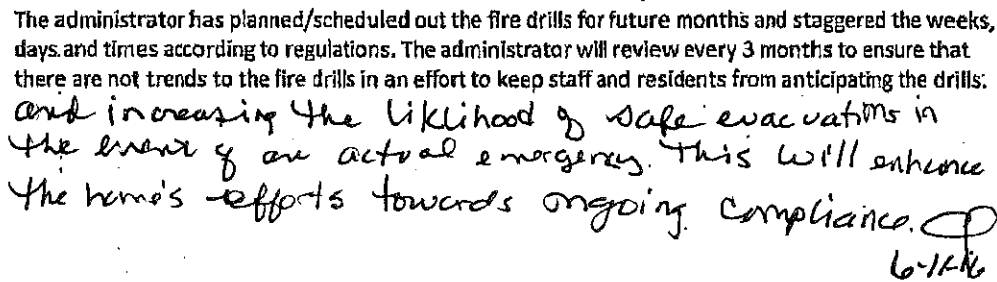 The administrator has planned/scheduled out the fire drills for future months and staggered the weeks,
days and times according to regulations. The administrator will review every 3 months to ensure that
there are not trends to the fire drills in an effort to keep staff and residents from anticipating the drills.
and increasing the liklihood of safe evacuations in
the event of an actual emergency. This will enhance
the home's efforts towards ongoing compliance.